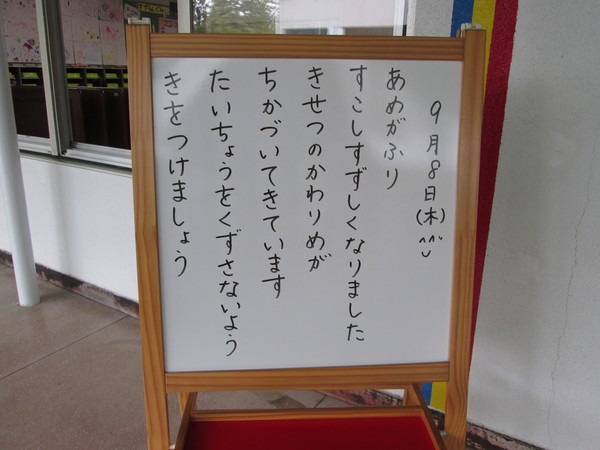 9月8日(木)
あめがふり
すこしすずしくなりました
きせつのかわりめが
ちかづいてきています
たいちょうをくずさないよう
きをつけましょう